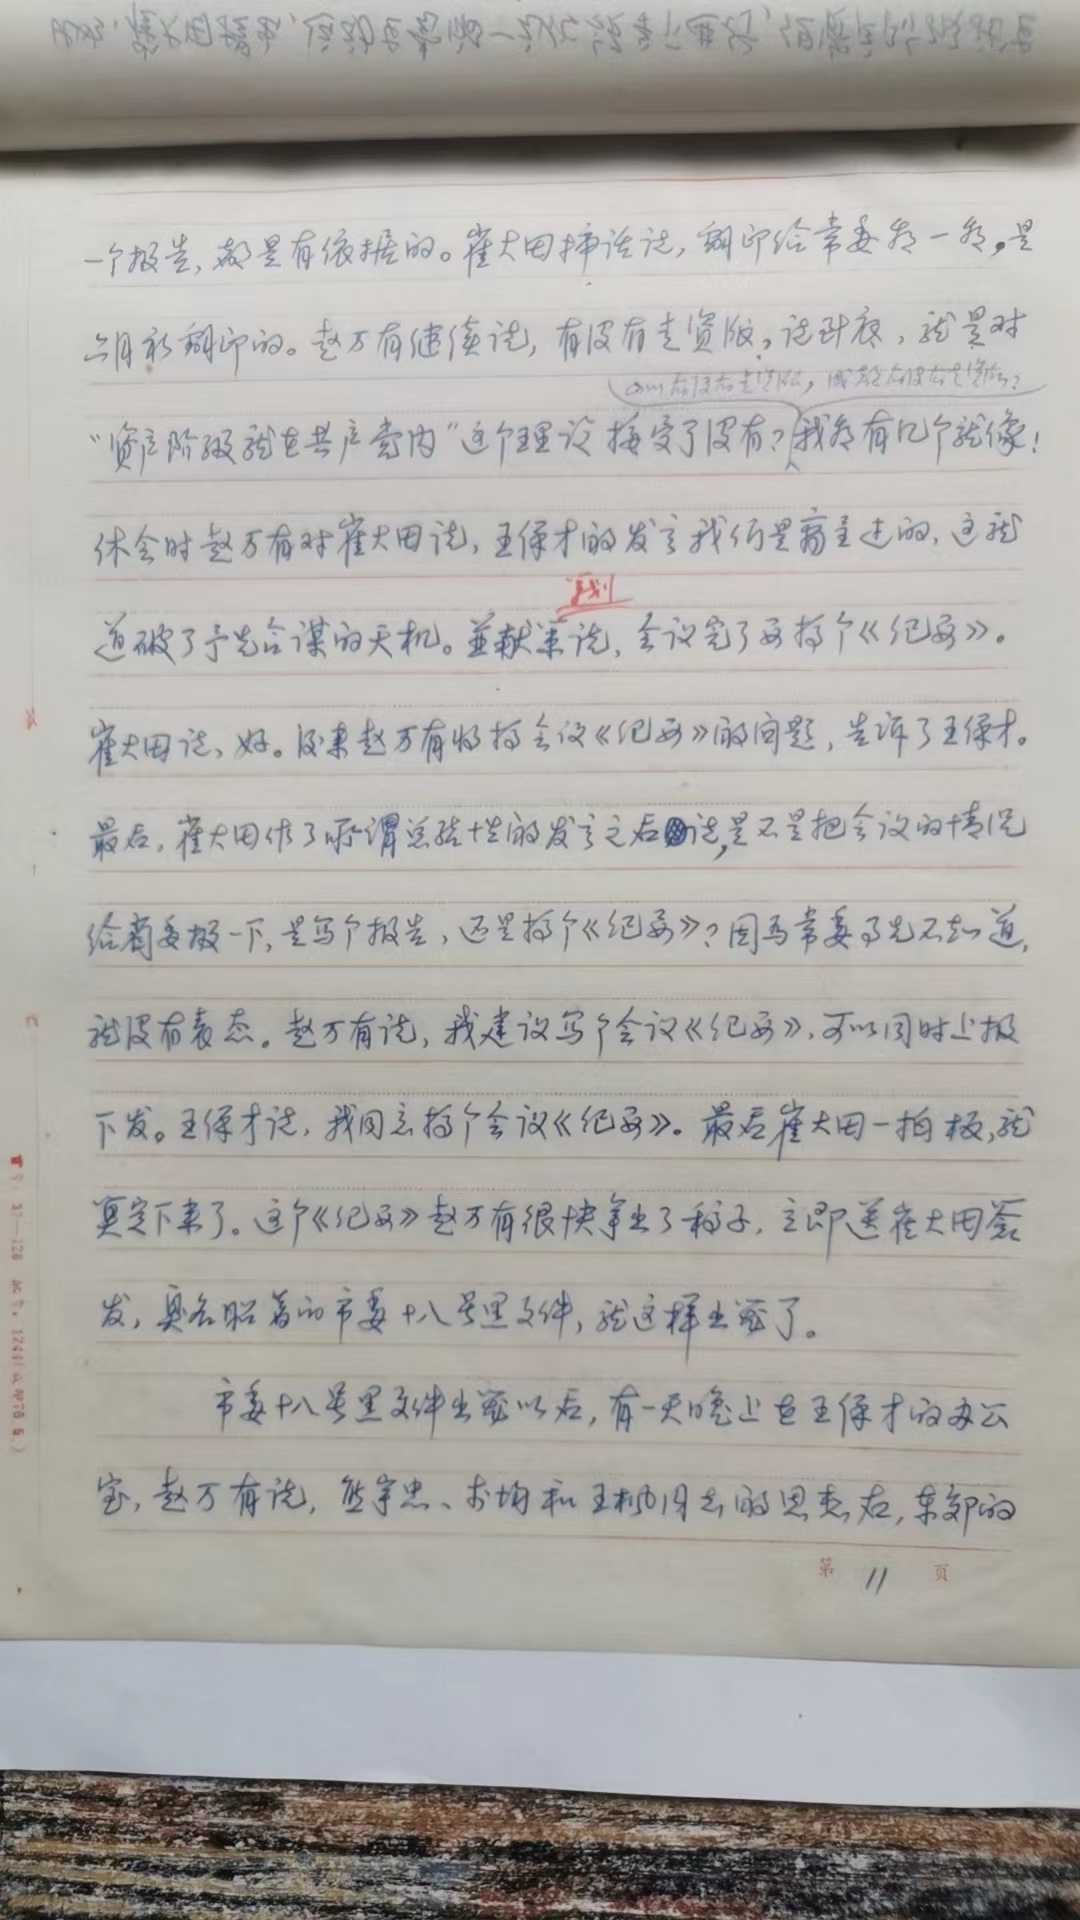 一个报告，都是有依据的。崔大田插话说，翻印给常委各一份，是
六月衫翻印的。赵万有继续说，有没有走资派，说到底，就是对
有没有走资派，成都有没有走资派？
“资产阶级就在共产党内”这个理论接受了没有？我看有几个就像！
休会时赵万有对崔大田说，王保才的发言我们是商量过的，这就
策划
道破了予先合谋的天机。并献策说，会议完了要搞个《纪要》。
崔大田说，好。后来赵万有将搞会议《纪要》的问题，告诉了王保才。
最后，崔大田作了所谓总结性的发言之后说，是不是把会议的情况
给省委报一下，是写个报告，还是搞个《纪要》？因为常委予先不知道，
就没有表态。赵万有说，我建议写个会议《纪要》，可以同时上报
下发。王保才说，我同意搞个会议《纪要》。最后崔大田一拍板，就
算定下来了。这个《纪要》赵万有很快拿出了稿子，立即送崔大田签
发，臭名昭著的市委十八号黑文件，就这样出笼了。
市委十八号黑文件出笼以后，有一天晚上在王保才的办公
室，赵万有说，熊宇忠、和王枫同志的思想右，东郊的
第 11 页